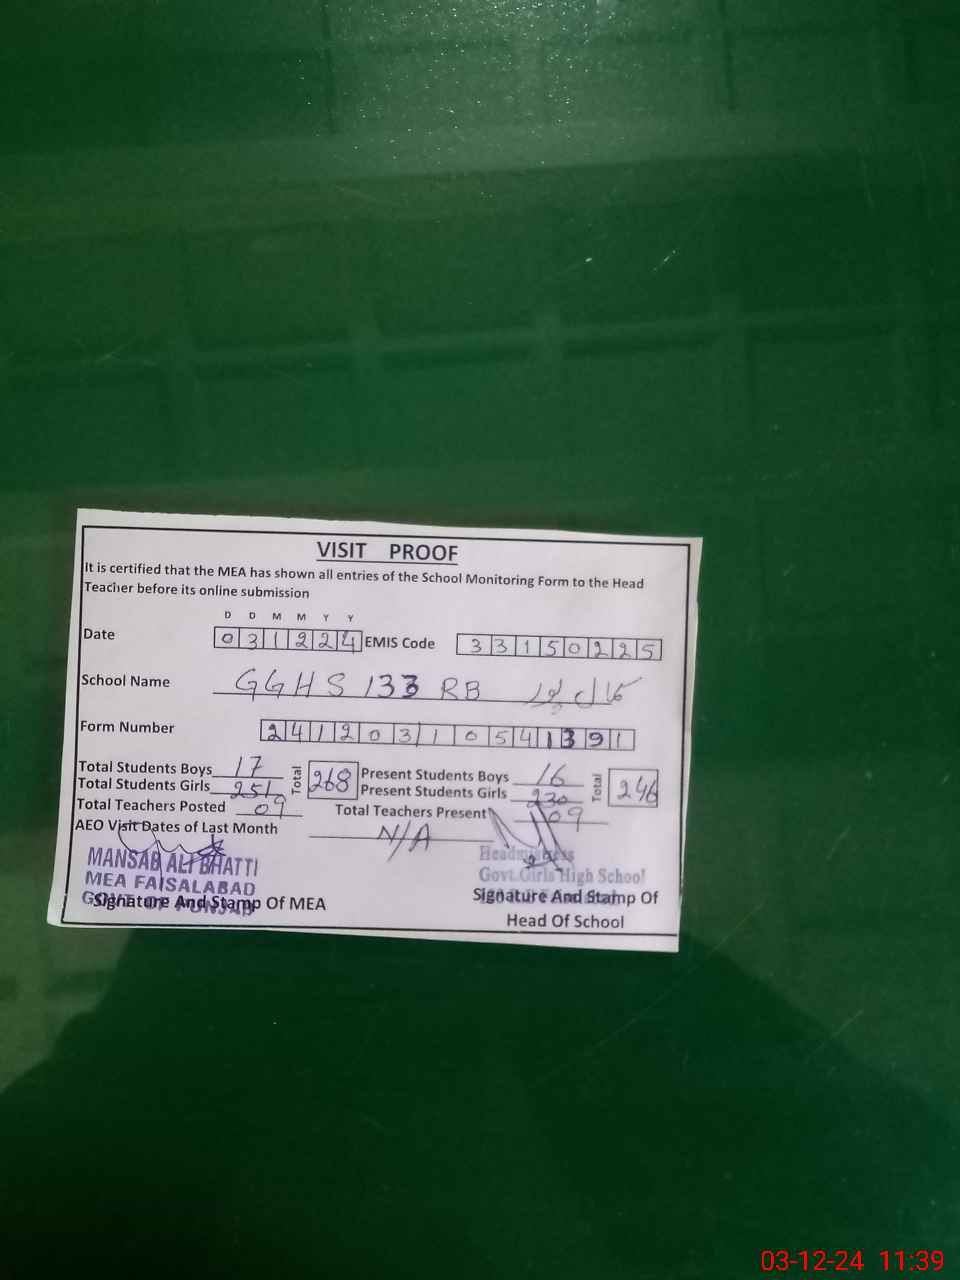 VISIT PROOF
It is certified that the MEA has shown all entries of the School Monitoring Form to the Head
Teacher before its online submission
D D M M Y Y
Date 031224 EMIS Code 33150225
School Name GGHS 133 RB
Form Number 24120310541391
Total Students Boys 17 Total 268 Present Students Boys 16 Total 246
Total Students Girls 251 Present Students Girls 230
Total Teachers Posted 09 Total Teachers Present 09
AEO Visit Dates of Last Month N/A
MANSAB ALI BHATTI
MEA FAISALABAD
GOVT. OF PUNJAB
Signature And Stamp Of MEA
Headmistress
Govt.Girls High School
Signature And Stamp Of
Head Of School
03-12-24 11:39